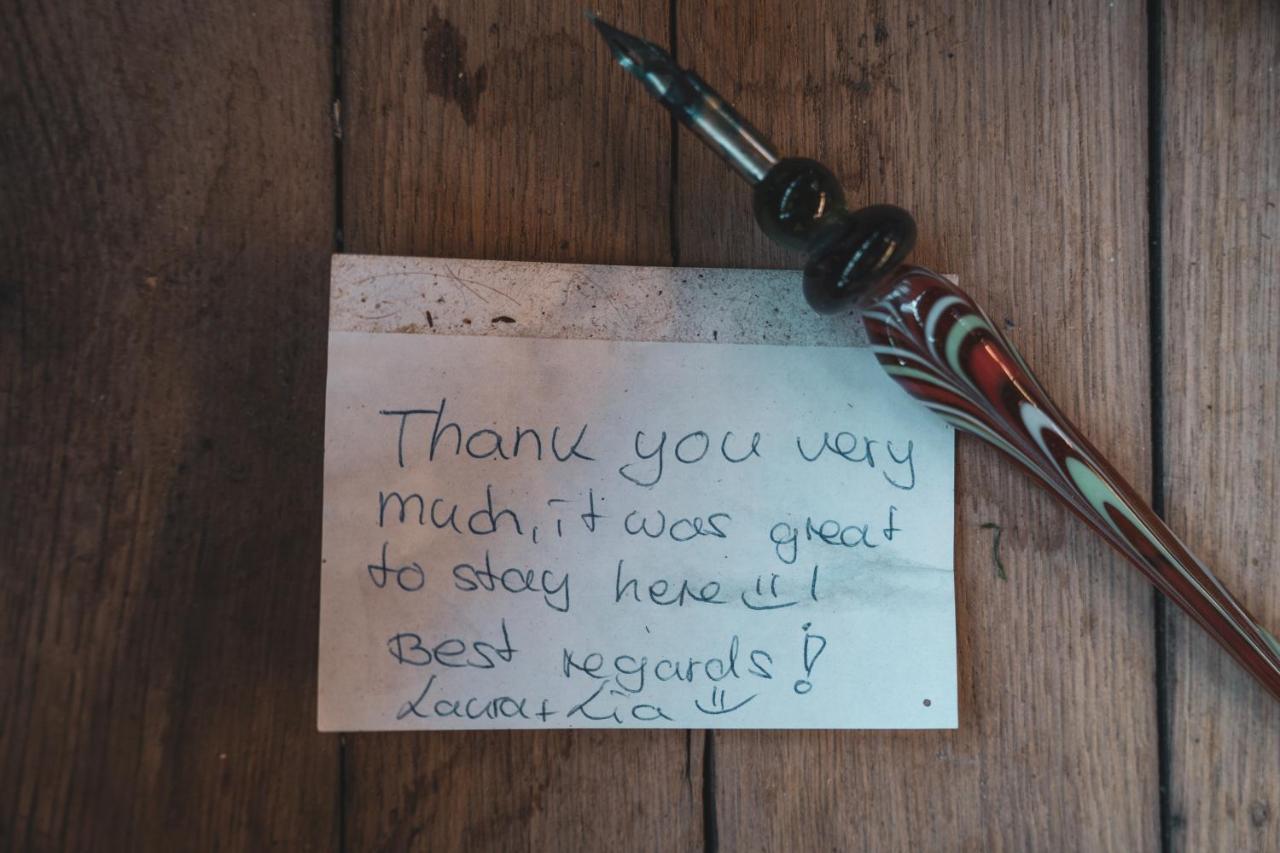 Thank you very
much, it was great
to stay here !
Best regards!
Laura + Lia